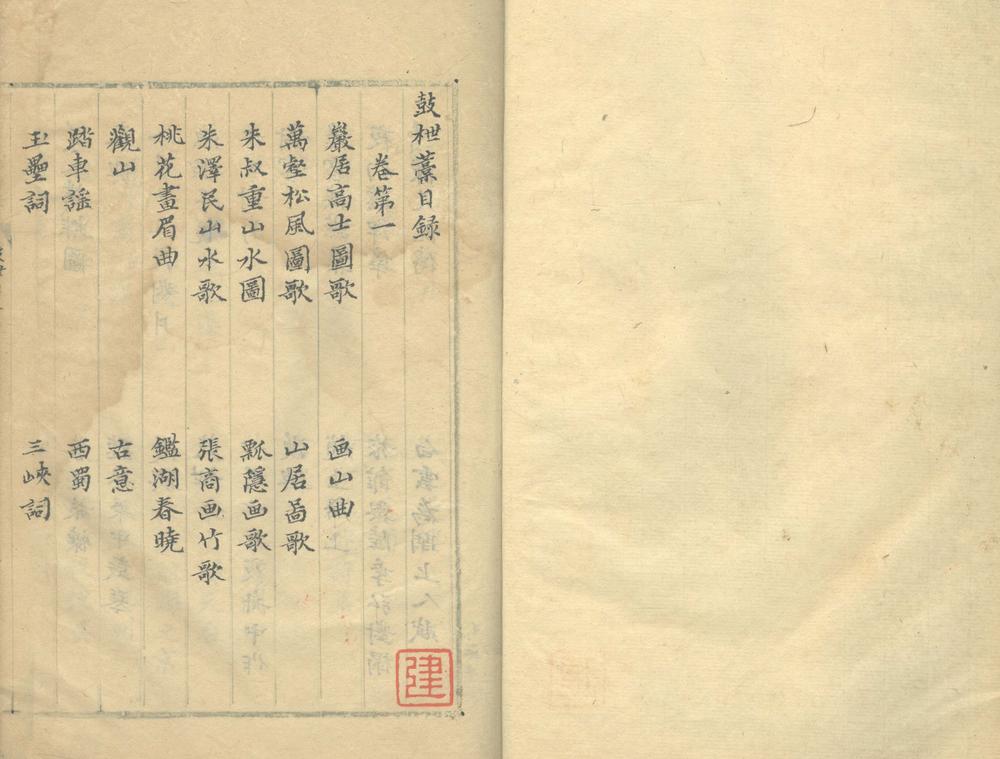 鼓枻藁目録
卷第一
巖居高士圖歌 画山曲
萬壑松風圖歌 山居啚歌
朱叔重山水圖 瓢隱画歌
朱澤民山水歌 張商画竹歌
桃花畫眉曲 鑑湖春曉
觀山 古意
踏車謡 西蜀
玉壘詞 三峽詞
建